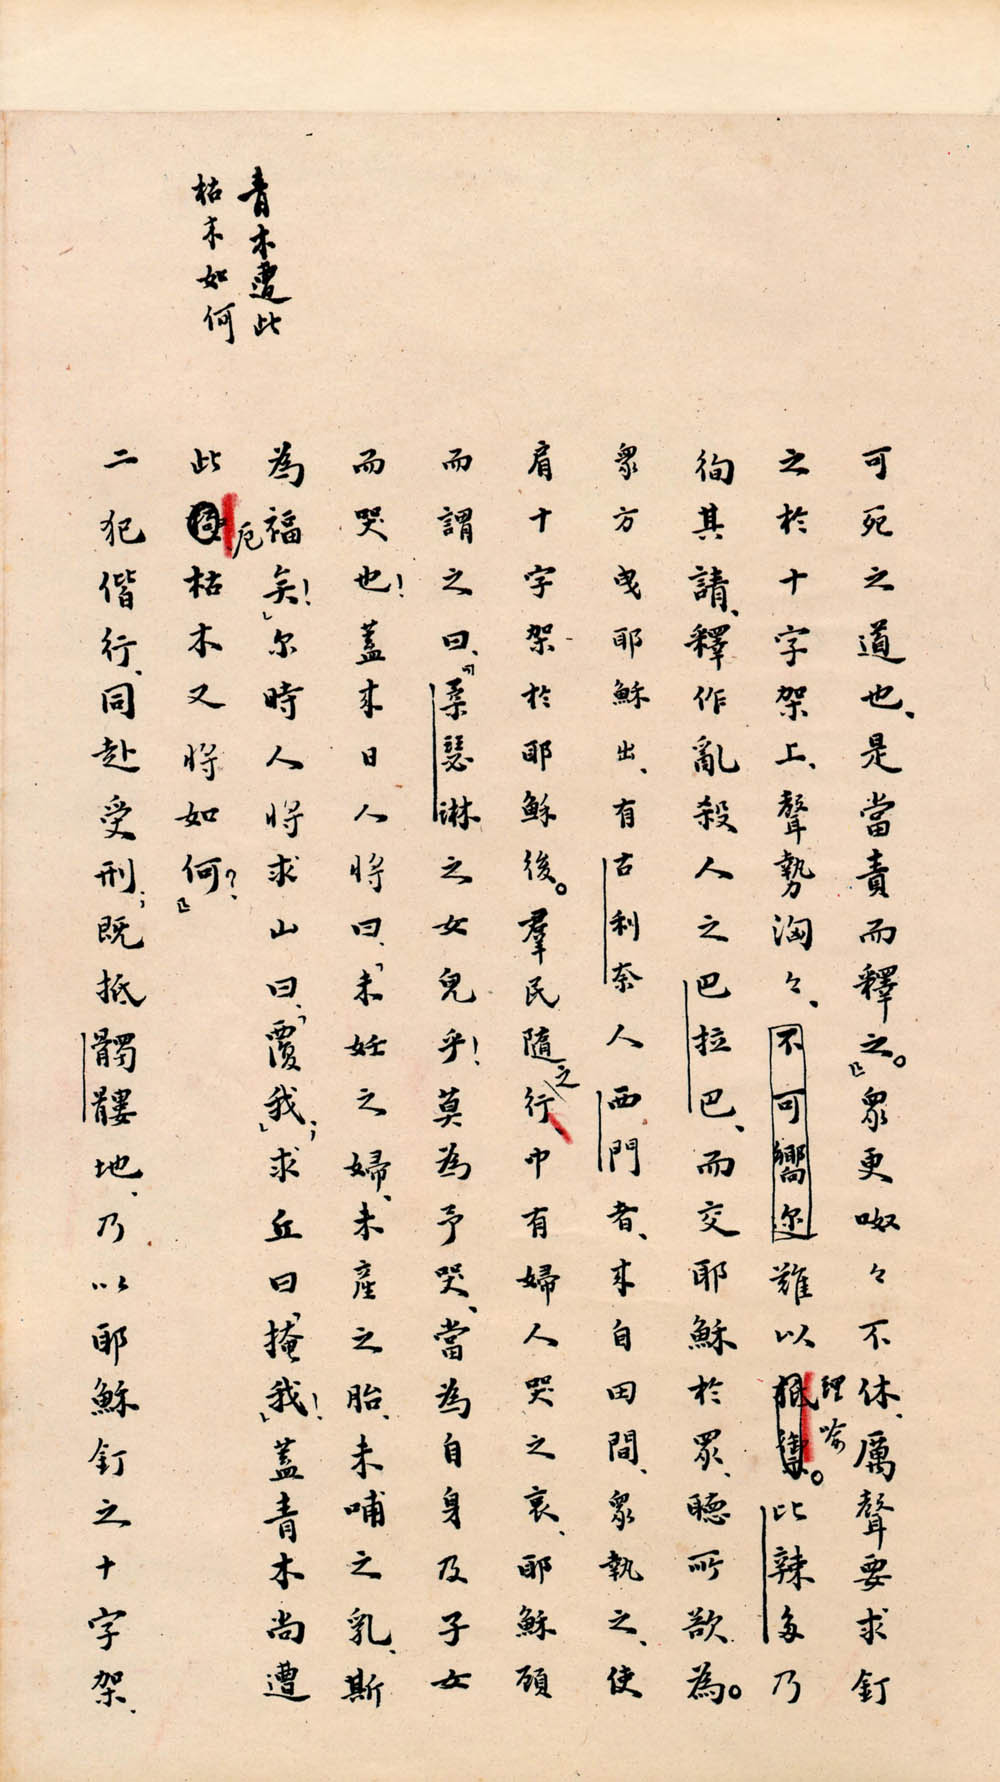 青木遭此
枯木如何
可死之道也、是當責而釋之。』眾更呶々不休、厲聲要求釘
之於十字架上、聲勢洶々、不可嚮邇難以理喻。比辣多乃
徇其請、釋作亂殺人之巴拉巴、而交耶穌於眾、聽所欲為。
眾方曳耶穌出、有古利奈人西門者、來自田間、眾執之、使
肩十字架於耶穌後。羣民隨之行、中有婦人哭之哀、耶穌顧
而謂之曰、『柔瑟淋之女兒乎!莫為予哭、當為自身及子女
而哭也!蓋來日人將曰、「未妊之婦、未產之胎、未哺之乳、斯
為福矣!」尔時人將求山曰、「覆我」;求丘曰「掩我!」蓋青木尚遭
此厄枯木又將如何?』
二犯偕行、同赴受刑;既抵髑髏地、乃以耶穌釘之十字架、